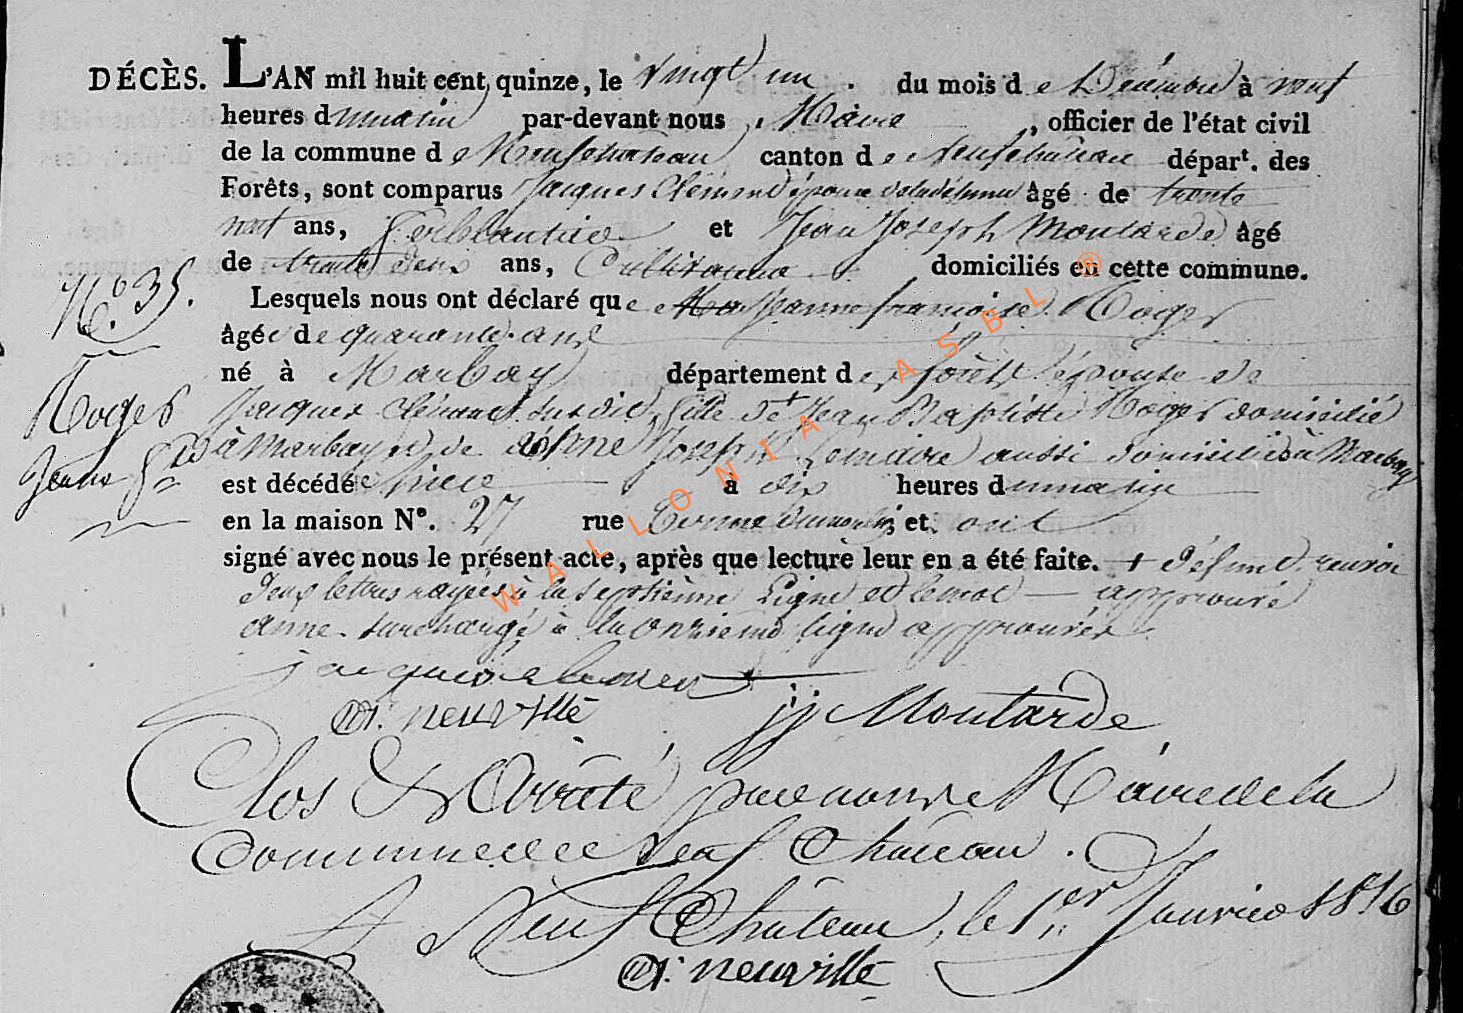 DÉCÈS. L'AN mil huit cent quinze, le vingt un du mois de Décembre à neuf
heures du matin par-devant nous Maire, officier de l'état civil
de la commune de Neufchateau canton de Neufchateau départ. des
Forêts, sont comparus Jacques Clément époux de la défunte âgé de trente
neuf ans, ferblantier et Jean Joseph Moutarde âgé
de trente deux ans, Cultivateur + domiciliés en cette commune.
Lesquels nous ont déclaré que Jeanne françoise Roger
âgée de quarante ans
né à Marbay département des forêts épouse de
Jacques Clément susdit, fille de Jean Baptiste Roger domicilié
à Marbay et de anne Joseph Lemaire aussi domiciliée à Marbay
est décédé à dix heures du matin
en la maison N°. 27 rue et ont
signé avec nous le présent acte, après que lecture leur en a été faite. + défunt renvoi
deux lettres rayées à la septième ligne et le mot — approuvé
anne surchargé à la onzième ligne approuvés
N° 35.
Roger
Jeanne
jacques clement
neuville
jj Moutarde
Clos & Arrêté par nous Maire de la
Commune de Neuf Château.
A Neuf Château, le 1er Janvier 1816
neuville
WALLONIA ASBL ®